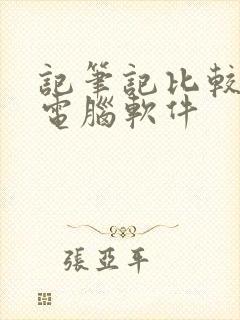 記筆記比較
電腦軟件
張亞平